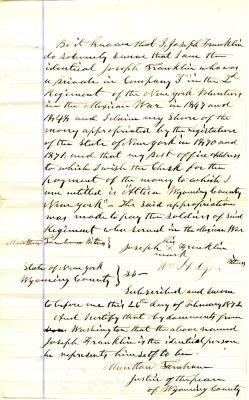 Be it known that I, Joseph Franklin
do solemnly swear that I am the
identical Joseph Franklin who was
a private in Company I in the 2d
Regiment of the New York Volunteers
in the Mexican War in 1847 and
1848 and I claim my share of the
money appropriated by the legislature
of the State of New york in 1870 and
1871 and that my post office address
to which I wish the Check for the
payment of the money to which I
am intitled is "Attica Wyoming County
New york". The said appropriation
was made to pay the soldiers of said
Regiment who served in the Mexican War
Joseph his X Franklin
mark
State of New york
Wyoming County } ss
Subscribed and sworn
to before me this 26th day of February 1872
And Certify that by documents from
Washington, that the above named
Joseph Franklin is the identical person
he represents himself to be
Justice of the peace
of Wyoming County